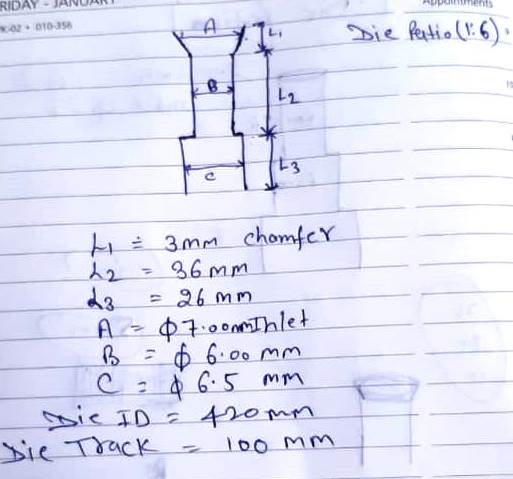 RIDAY - JANUARY
Appointments
K-02 • 010-356
Die Ratio (1:6).
A
L1
B
L2
C
L3
L1 = 3mm chamfer
L2 = 36 mm
L3 = 26 mm
A = ϕ7.00mm Inlet
B = ϕ 6.00 mm
C = ϕ 6.5 mm
Die ID = 420mm
Die Track = 100 mm